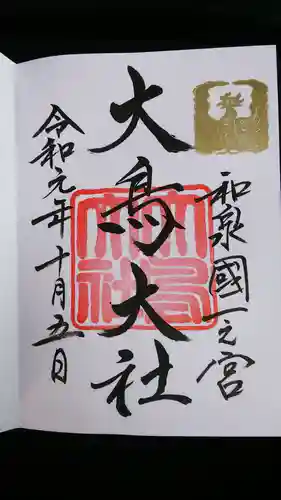 和泉國一之宮
大鳥大社
令和元年十月五日